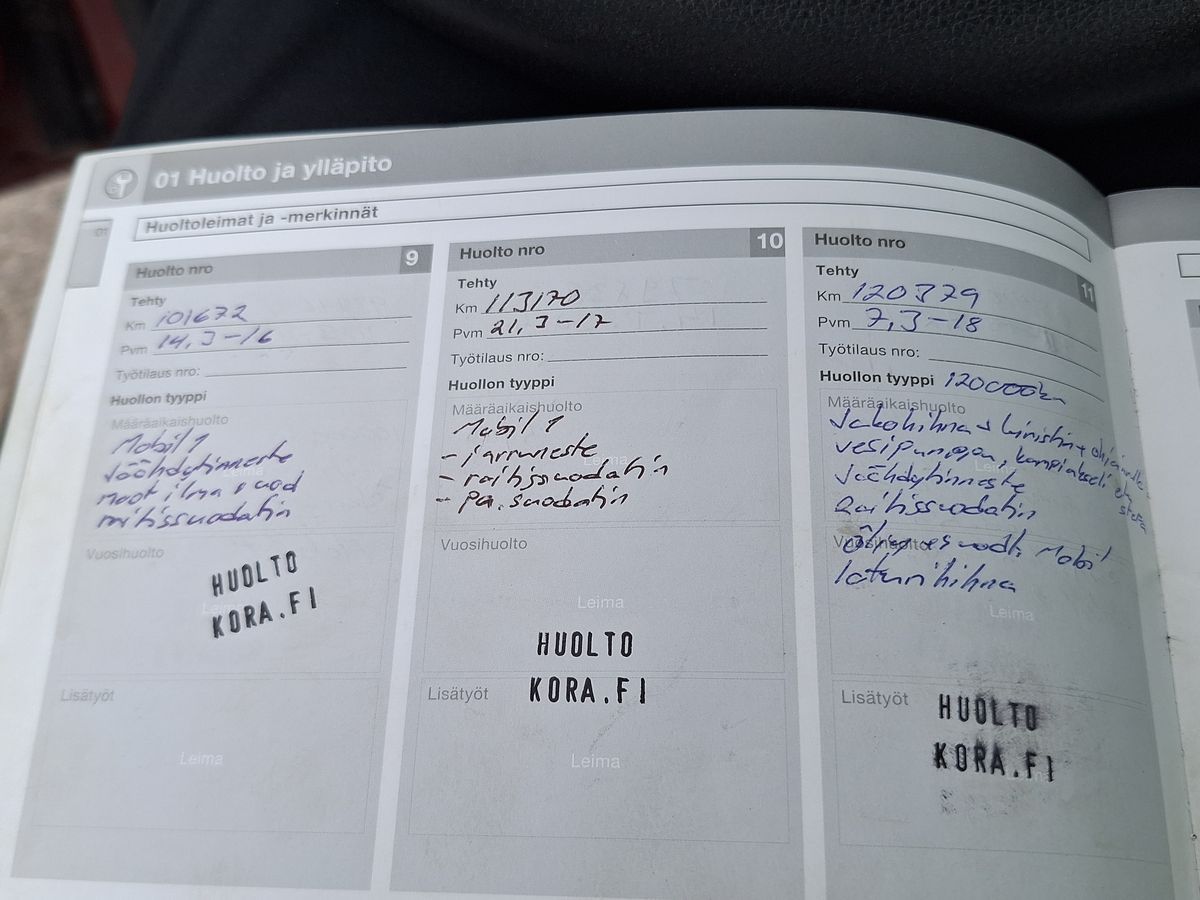 01 Huolto ja ylläpito
01
Huoltoleimat ja -merkinnät
Huolto nro 9
Tehty
Km 101672
Pvm 14.3-16
Työtilaus nro:
Huollon tyyppi
Määräaikaishuolto
Mobil 1
Jäähdytinneste
moot ilma suod
raitissuodatin
Vuosihuolto
Leima
HUOLTO
KORA.FI
Lisätyöt
Leima
Huolto nro 10
Tehty
Km 113170
Pvm 21.3-17
Työtilaus nro:
Huollon tyyppi
Määräaikaishuolto
Mobil 1
- jarruneste
- raitissuodatin
- pa.suodatin
Vuosihuolto
Leima
HUOLTO
Lisätyöt KORA.FI
Leima
Huolto nro 11
Tehty
Km 120379
Pvm 7.3-18
Työtilaus nro:
Huollon tyyppi 120000km
Määräaikaishuolto
Jakohihna + kiristin +
vesipumppu, kampiakseli
Jäähdytinneste
Raitissuodatin
Vuosihuolto
Mobil
laturihihna
Leima
Lisätyöt
HUOLTO
KORA.FI